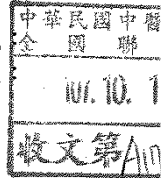 中華民國中醫
全國聯
101.10.1
收文第